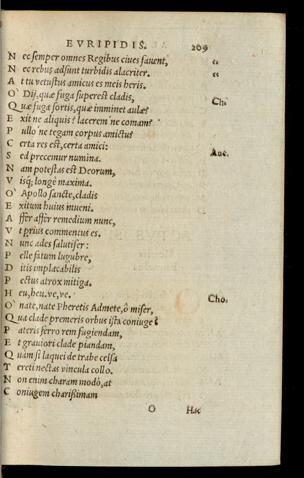 EVRIPIDIS. 209
N ec semper omnes Regibus ciues fauent, „
N ec rebus adsunt turbidis alacriter. „
A t tu vetustus amicus es meis heris.
O` Dij, quæ fuga superest cladis, Ch.
Q uæ fuga fortis, quæ imminet aulæ?
E xit ne aliquis? lacerem' ne comam?
P ullo' ne tegam corpus amictu?
C erta res est, certa amici:
S ed precemur numina. Anc.
N am potestas est Deorum,
V isq; longè maxima.
O` Apollo sancte, cladis
E xitum huius inueni.
A ffer affer remedium nunc,
V t prius commentus es.
N unc ades salutifer:
P elle fatum lugubre,
D itis implacabilis
P ectus atrox mitiga.
H eu, heu, ve, ve. Cho.
O` nate, nate Pheretis Admete, ô miser,
Q ua clade premeris orbus ista coniuge?
P ateris ferro rem fugiendam,
E t grauiori clade piandam,
Q uàm si laquei de trabe celsa
T ereti nectas vincula collo.
N on enim charam modò, at
C oniugem charissimam
O Hac